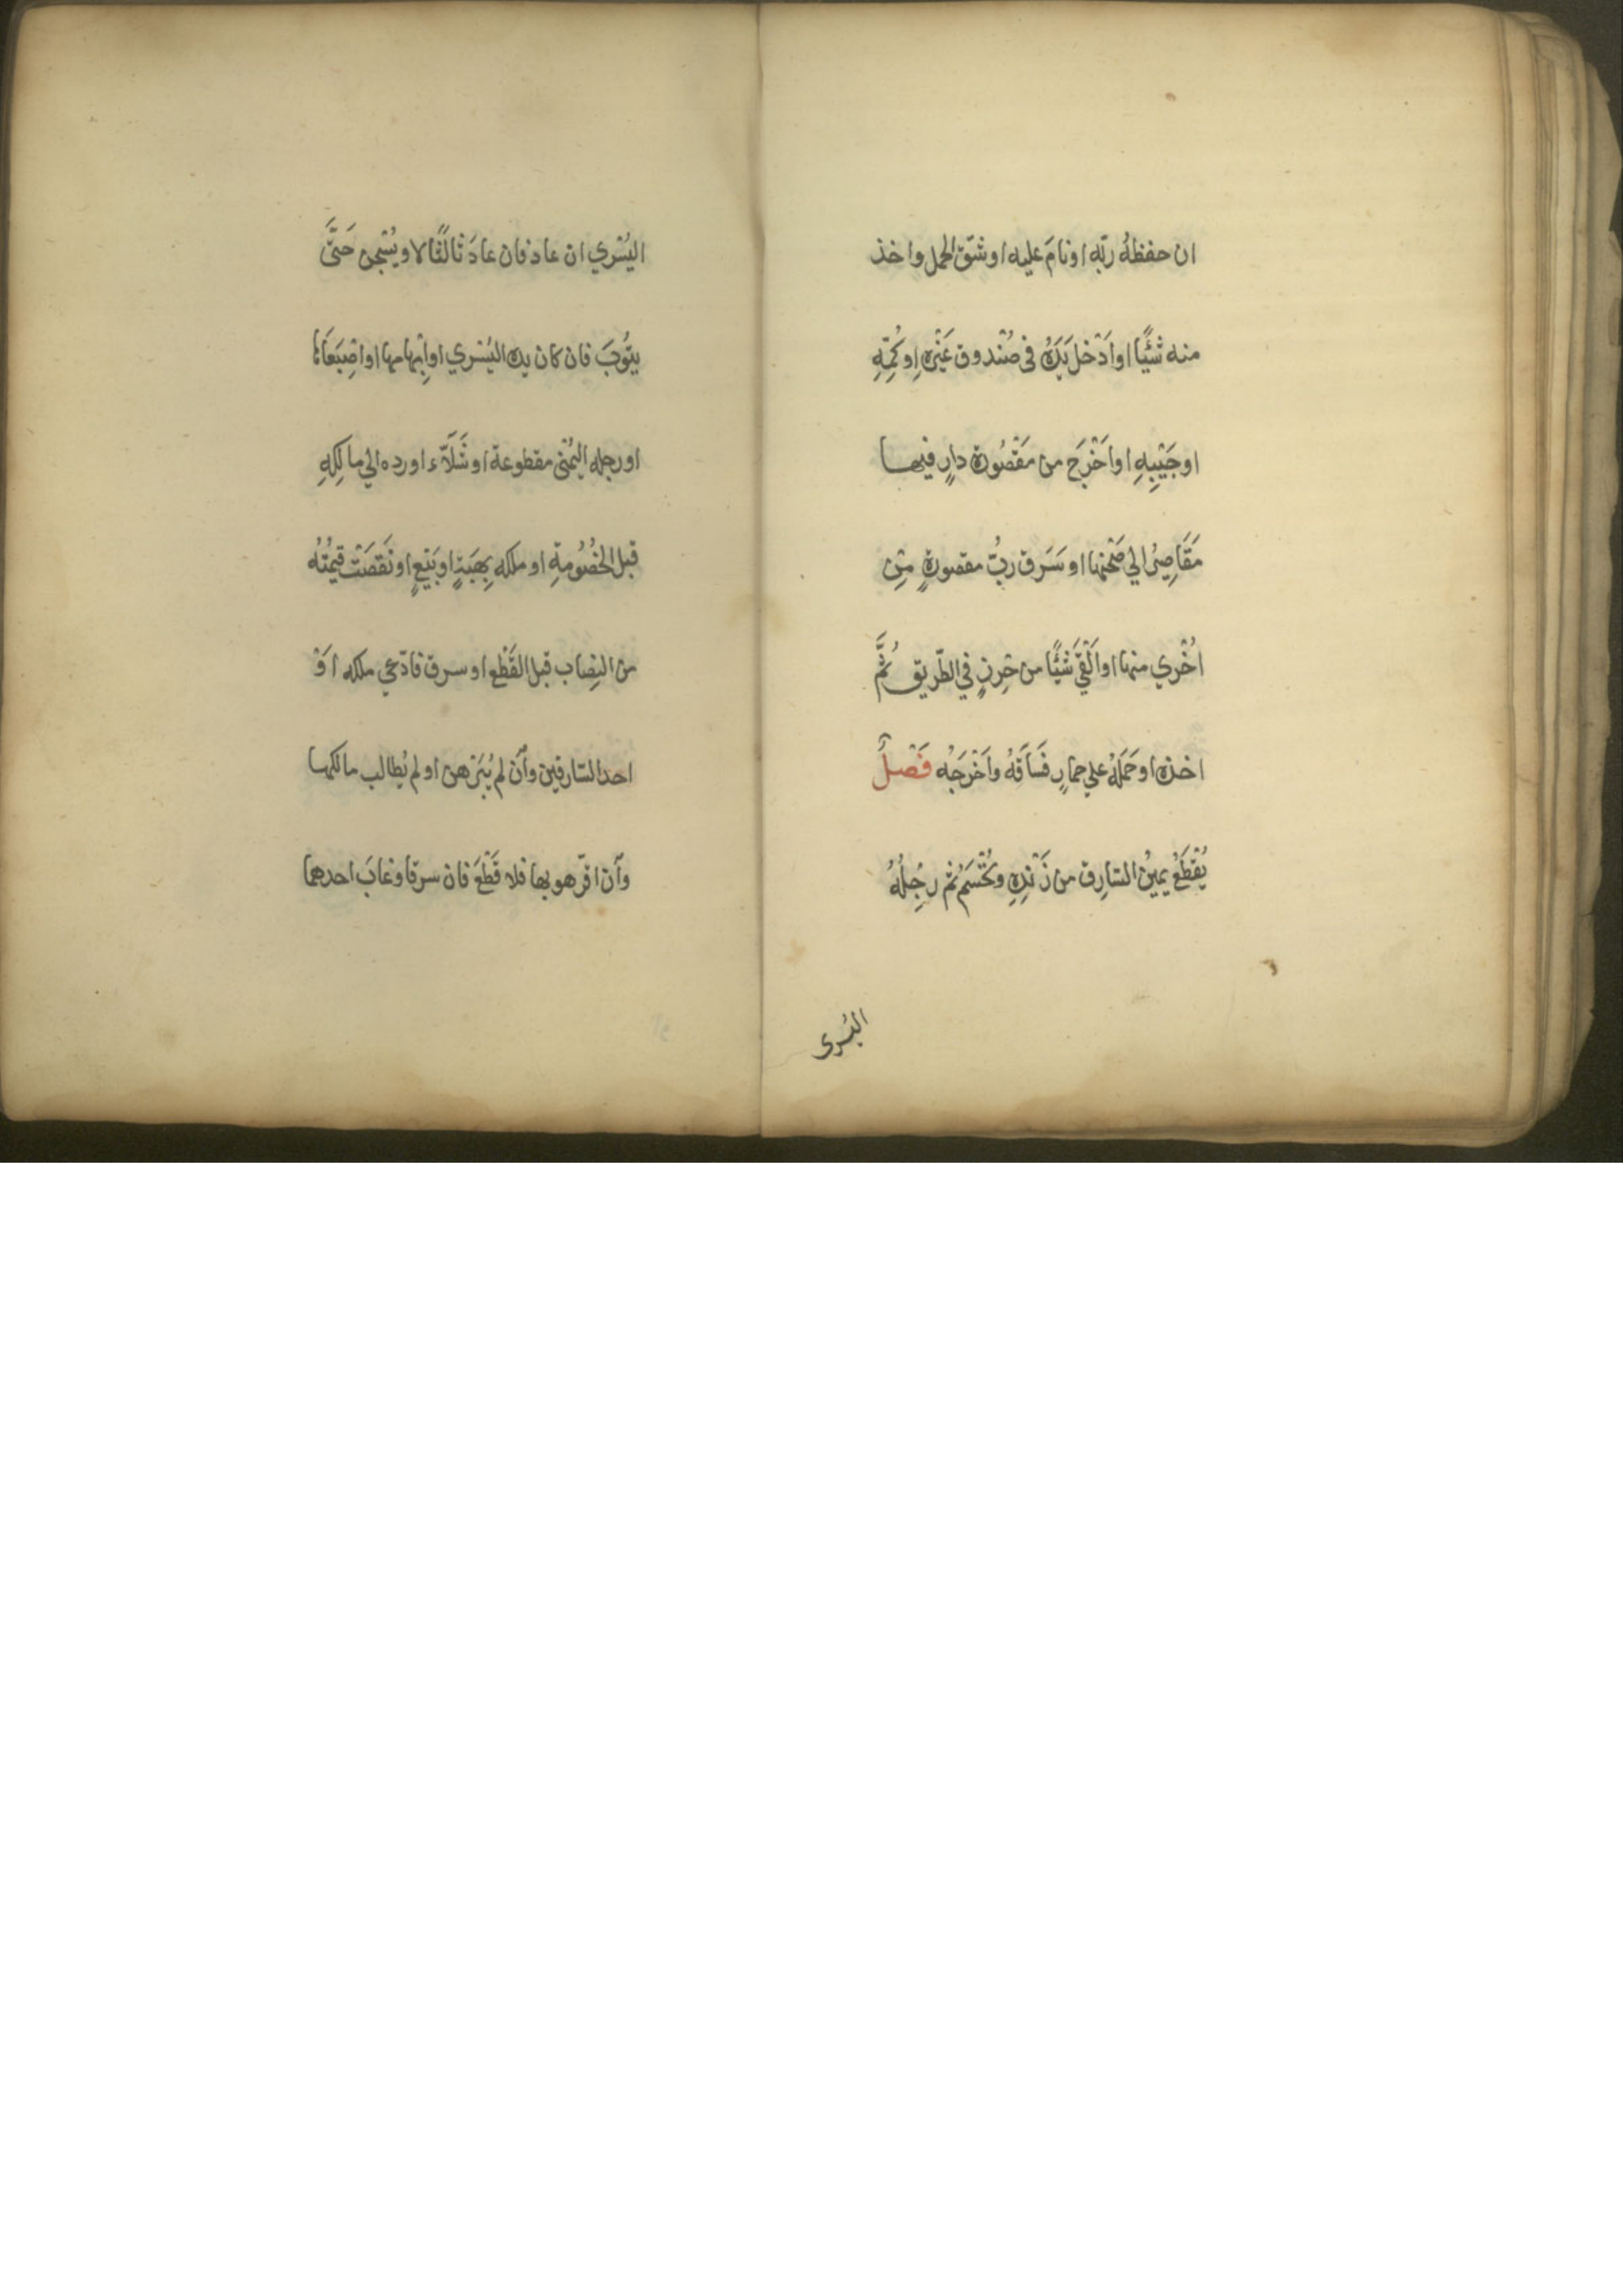 ان حفظهُ ربّه او نامَ عليه او شقّ الحمل واخذ
منه شَيًْا او اَدْخل يَدَهُ فى صُنْدوق غَيْرِه او كُمِّهِ
او جَيْبِهِ او اَخْرَجَ من مَقْصُورة دارٍ فيهـا
مَقَاصِيرُ الي صَحْنها او سَرَق ربُّ مقصورةٍ مِن
اخُرْي منها او اَلْقيَ شَيًْا من حِرزٍ في الطّريق ثُمَّ
اخذه او حَمَلهُ علي حمارٍ فَسَاقَهُ واَخْرَجُه فَصْلٌ
يُقْطَعُ يمينُ السّارِق من زَنْدِهِ وتُحْسَمُ ثم رِجْلُهُ
اليُسرى
اليُسْري ان عاد فان عادَ ثالثًا لا ويُسْجن حَتَّى
يتُوبَ فان كان يده اليُسْري او اِبْهامها او اصْبَعَاها
او رجله اليُمْنى مقطوعة او شَلَّاء او رده الي مالِكِهِ
قبل الخُصُومةِ او ملكه بِهبَةٍ او بَيْعٍ او نَقَصَتْ قيمُتهُ
من النِصاب قبل القَطْع او سرق فادّعي ملكه اَوْ
احد السّارقين وأن لم يُبَرْهن او لم يُطالب مالكهـا
وأن اقرّ هو بها فلا قَطْعَ فان سرقا وغابَ احدهما